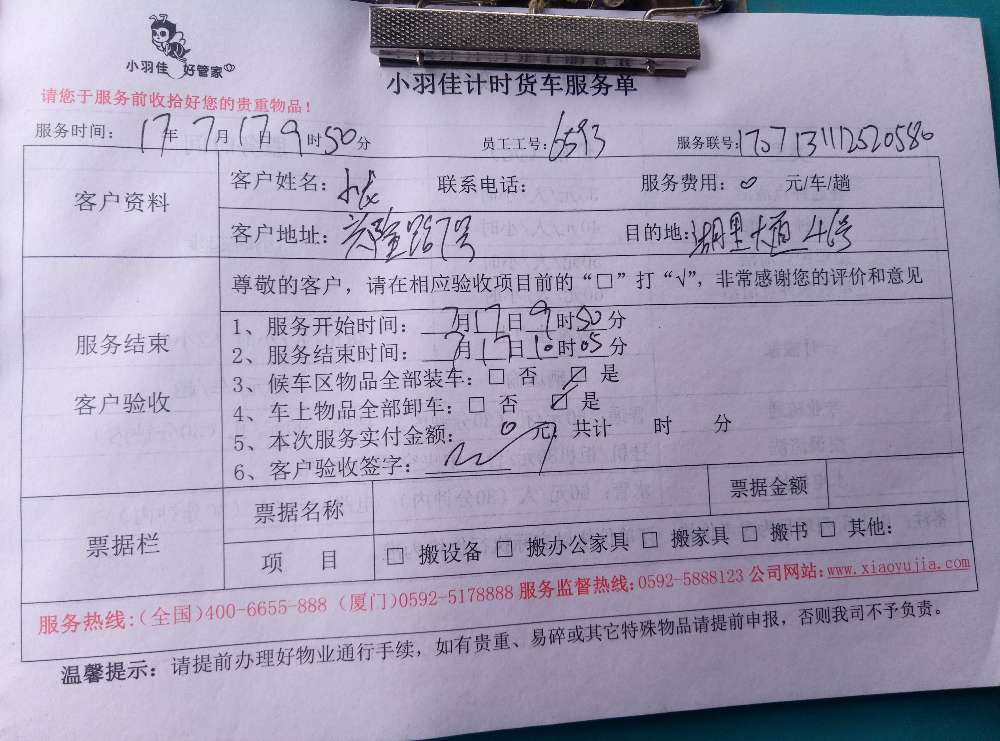 小羽佳 好管家
小羽佳计时货车服务单
请您于服务前收拾好您的贵重物品！
服务时间： 17年 7月17日 9时50分 员工工号：6593 服务联号：
客户资料
客户姓名： 联系电话： 服务费用：0 元/车/趟
客户地址： 路7号 目的地：湖里大道46号
服务结束
客户验收
尊敬的客户，请在相应验收项目前的“□”打“√”，非常感谢您的评价和意见
1、服务开始时间： 7月17日 9时50分
2、服务结束时间： 7月17日10时05分
3、候车区物品全部装车：□ 否 ☑ 是
4、车上物品全部卸车：□ 否 ☑ 是
5、本次服务实付金额： 0 元；共计 时 分
6、客户验收签字：
票据栏
票据名称 票据金额
项 目 □ 搬设备 □ 搬办公家具 □ 搬家具 □ 搬书 □ 其他：
服务热线：（全国）400-6655-888 （厦门）0592-5178888 服务监督热线：0592-5888123 公司网站：www.xiaoyujia.com
温馨提示：请提前办理好物业通行手续，如有贵重、易碎或其它特殊物品请提前申报，否则我司不予负责。